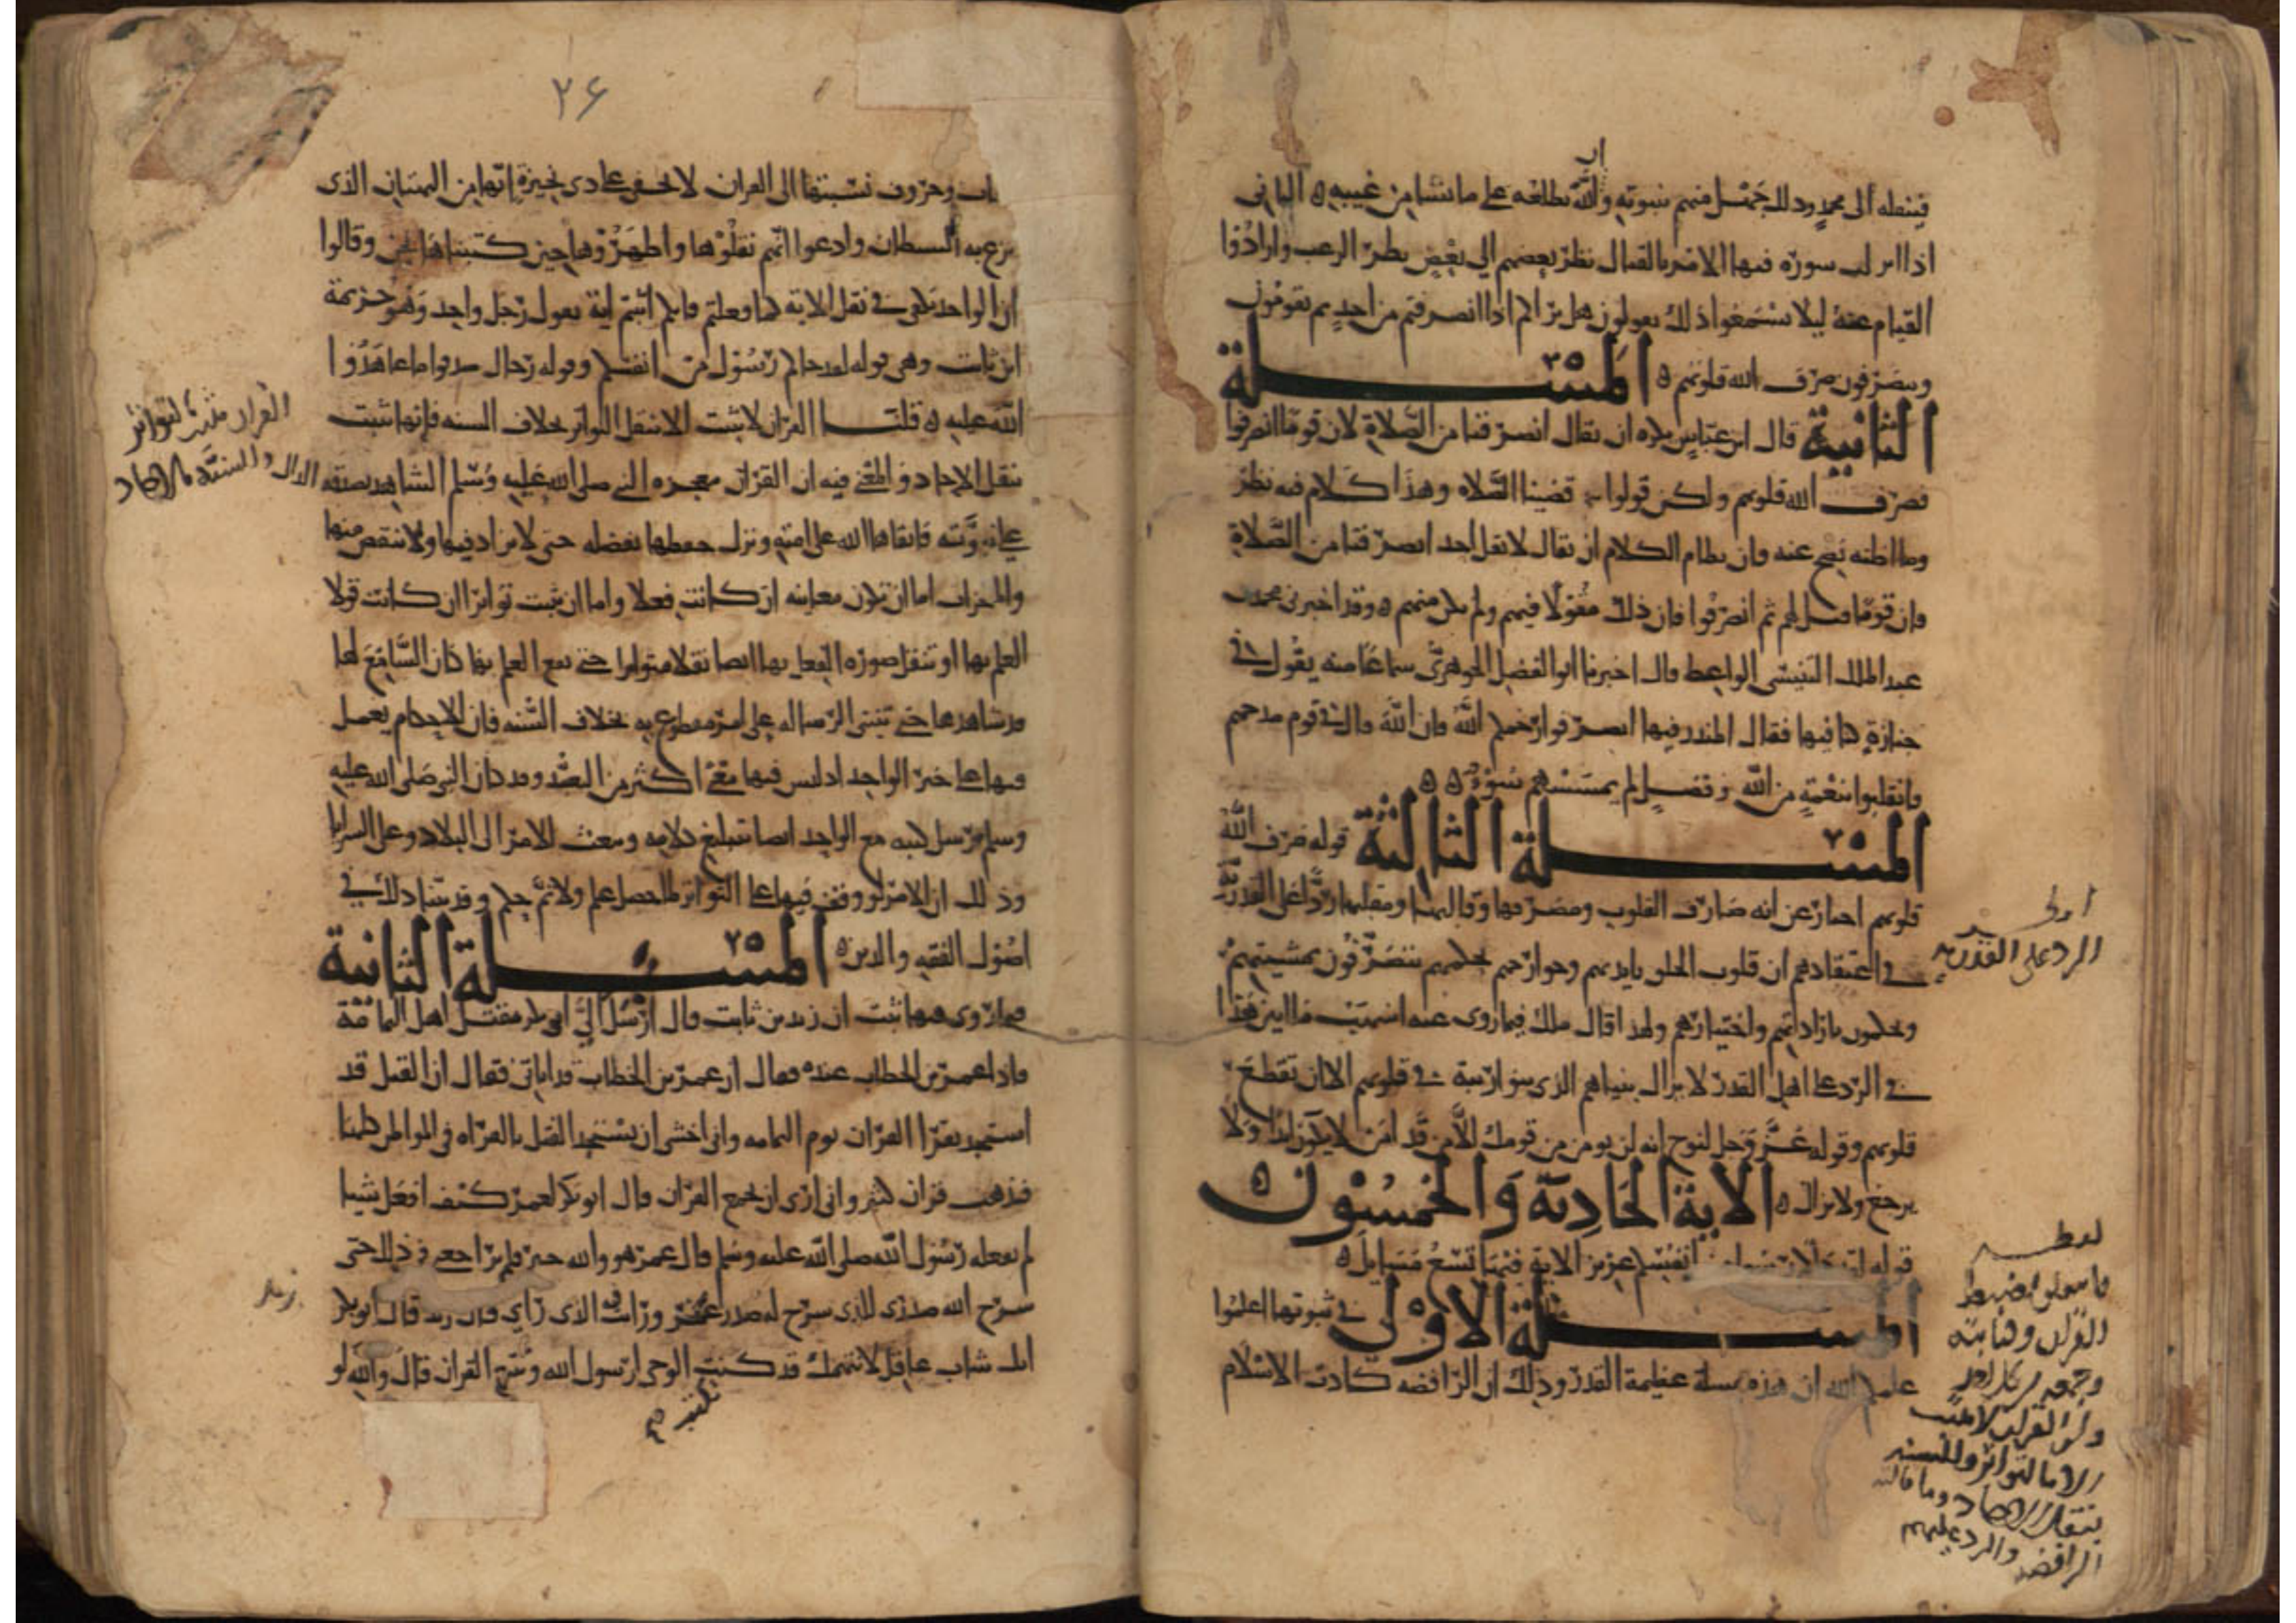 فينقله الى محمد وذلك جهل منهم بنبوته وان الله يطلعه على ما يشا من غيبه ه الثاني
اذا انزلت سورة فيها الامر بالقتال نظر بعضهم الى بعض نظر الرعب وارادوا
القيام عنه ليلا يسمعوا ذلك يقولون هل يراكم اذا انصرفتم من احد ثم يقومون
وينصرفون صرف الله قلوبهم ه المسـلة
الثانية قال ابن عباس يكره ان يقال انصرفنا من الصلاة لان قوما انصرفوا
فصرف الله قلوبهم ولكن قولوا قضينا الصلاه وهذا كلام فيه نظر
وما اظنه يصح عنه فان نظام الكلام ان يقال لا يقل احد انصرفنا من الصلاة
فان قوما قيل لهم ثم انصرفوا فان ذلك مقولا فيهم ولم يكن منهم ه وقد اخبرني محمد بن
عبد الملك التنيسى الواعظ قال اخبرنا ابو الفضل الجوهرى سماعا منه يقول في
جنازة كنا فيها فقال المنذر فيها انصرفوا رحمكم الله فان الله قال في قوم ذمهم
فانقلبوا بنعمة من الله وفضل لم يمسسهم سوء ه ه
المسـلة الثالثة قوله صرف الله
قلوبهم اخبار عن انه صارف القلوب ومصرفها وقالبها ومقلبها ردا على القدرية
في اعتقادهم ان قلوب الخلق بايديهم وجوارحهم بحكمهم يتصرفون بمشيتهم
ويحكمون بارادتهم واختيارهم ولهذا قال ملك فيما روى عنه اشهب ما ابين هذا
في الرد على اهل القدر لا يزال بنيانهم الذى بنوا ريبة في قلوبهم الا ان تقطع
قلوبهم وقوله عز وجل لنوح انه لن يومن من قومك الا من قد امن لا يكون ابدا ولا
يرجع ولا يزال ه الاية الحادية والخمسون ه
انفسكم عزيز الاية فيها تسع مسايل ه
المسـلة الاولى في ثبوتها اعلموا
علمكم الله ان هذه مسلة عظيمة القدر وذلك ان الرافضه كادت الاسلام
الرد على القدرية
القران وكتابته
الا بالتواتر والسنه
الرافضه والرد عليهم
٢٦
وحروف نسبتها الى القران لا تخفى على ذى بحيرة انها من البهتان الذى
نزغ به الشيطان وادعوا انهم نقلوها واظهروها حين كتمناها نحن وقالوا
ان الواحد يكفى في نقل الاية كما فعلتم فانكم اثبتم اية بقول رجل واحد وهو خزيمة
ابن ثابت وهى قوله لقد جاكم رسول من انفسكم وقوله رجال صدقوا ما عاهدوا
الله عليه ه قلنـا القران لا يثبت الا بنقل التواتر بخلاف السنه فانها تثبت
بنقل الاحاد والمعنى فيه ان القران معجزه النبي صلى الله عليه وسلم الشاهد بصدقه الدال
على نبوته فابقاها الله على امته وتولى حفظها بفضله حتى لا يزاد فيها ولا ينقص منها
والمعجزات اما ان تكون معاينه ان كانت فعلا واما ان تثبت تواترا ان كانت قولا
العلم بها او تنقل صوره الفعل بها ايضا نقلا متواترا حتى يقع العلم بها كان السامع لها
قد شاهدها حتى تنبنى الرساله على امر مقطوع به بخلاف السنه فان الاحكام يعمل
فيها على خبر الواحد اذ ليس فيها معنى اكثر من التعبد وقد كان النبى صلى الله عليه
وسلم يرسل كتبه مع الواحد ايضا تبليغ كلامه ويبعث الامرا الى البلاد وعلى السرايا
وذلك ان الامر لو وقف فيها على التواتر لما حصل علم ولا تم حكم وقد بينا ذلك في
اصول الفقه والدين ه المسـلة الثانية
فيما روى فيها ثبت ان زيد بن ثابت قال ارسل الي ابو بكر مقتل اهل اليمامة
فاذا عمر بن الخطاب عنده فقال ان عمر بن الخطاب قد اتانى فقال ان القتل قد
استحر بقرا القران يوم اليمامه وانى اخشى ان يستحر القتل بالقراه في المواطن كلها
فيذهب قران كثير وانى ارى ان يجمع القران قال ابو بكر لعمر كيف افعل شيا
لم يفعله رسول الله صلى الله عليه وسلم قال عمر هو والله خير فلم يزل يراجعنى في ذلك حتى
شرح الله صدرى للذى شرح له صدر عمر ورايت فيه الذى راى قال زيد قال ابو بكر
انك شاب عاقل لا نتهمك قد كنت تكتب الوحى لرسول الله فتتبع القران قال والله لو
القران مثبت بالتواتر
والسنة بالاحاد
زيد